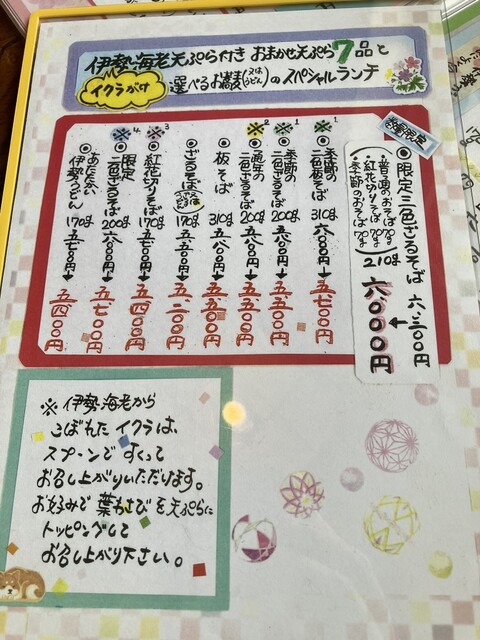 伊勢海老天ぷら付き おまかせ天ぷら7品と
イクラがけ
選べるお蕎麦(又はうどん)のスペシャルランチ
数量限定
◎限定三色ざるそば 六、三〇〇円
・普通のおそば70g
・紅花切りそば70g
・季節のおそば70g
210g
六、〇〇〇円
※1 ◎季節の二色板そば 310g 六、〇〇〇円→五、七〇〇円
※1 ◎季節の二色ざるそば 200g 五、八〇〇円→五、五〇〇円
※2 ◎通年の二色ざるそば 200g 五、八〇〇円→五、五〇〇円
◎板そば 310g 五、八〇〇円→五、五〇〇円
◎ざるそば 170g 五、五〇〇円→五、二〇〇円
※3 ◎紅花切りそば 170g 五、七〇〇円→五、四〇〇円
※4 ◎限定二色ざるそば 200g 六、〇〇〇円→五、七〇〇円
◎あたたかい伊勢うどん 170g 五、七〇〇円→五、四〇〇円
※伊勢海老から
こぼれたイクラは、
スプーンですくって
お召し上がりいただけます。
お好みで葉わさびを天ぷらに
トッピングして
お召し上がり下さい。